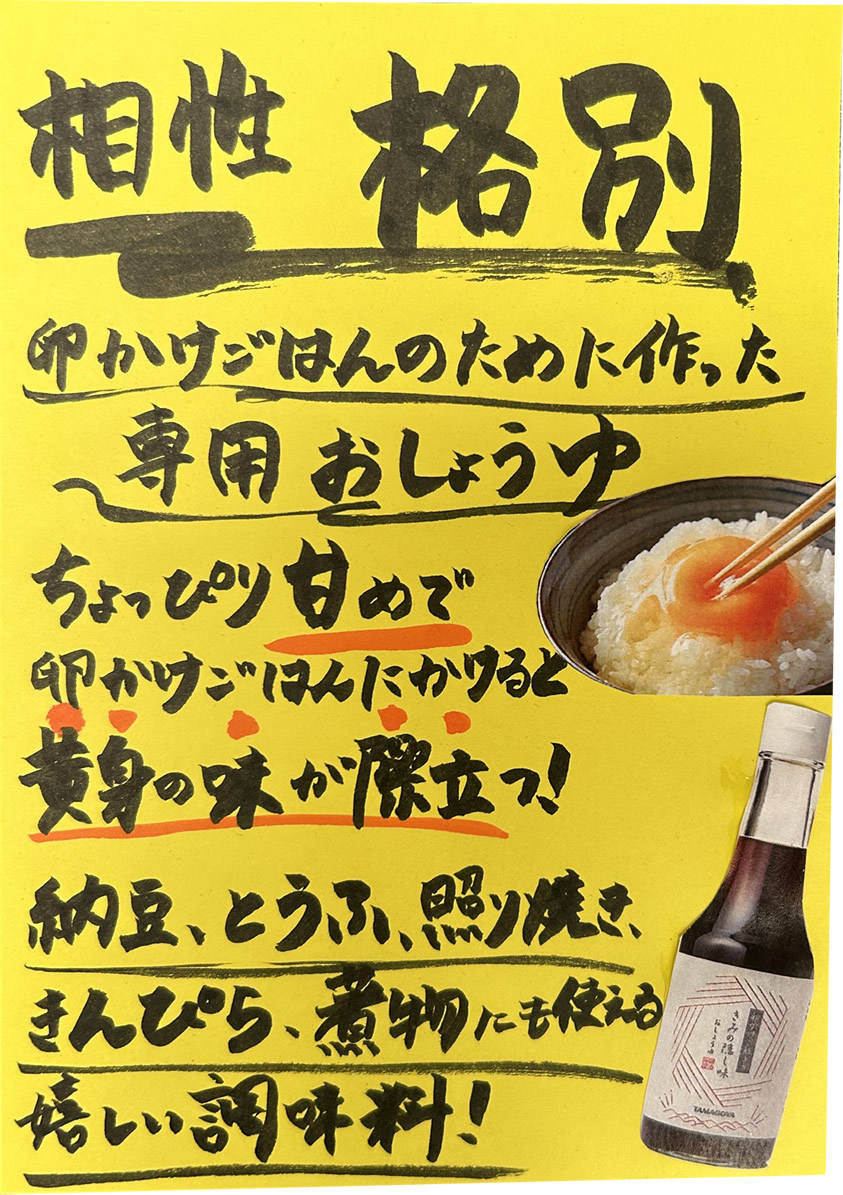 相性 格別
卵かけごはんのために作った
専用おしょうゆ
ちょっぴり甘めで
卵かけごはんにかけると
黄身の味が際立つ!
納豆、とうふ、照り焼き、
きんぴら、煮物にも使える
嬉しい調味料!
きみの隠し味
おしょうゆ
TAMAGOYA